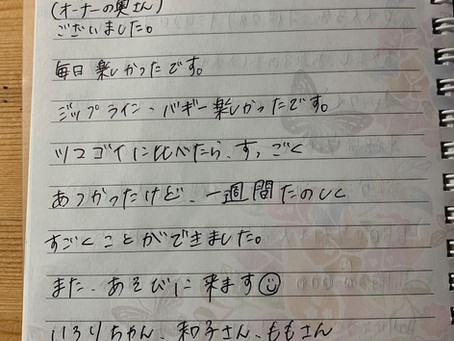 (オーナーの奥さん)
ございました。
毎日楽しかったです。
ジップライン・バギー楽しかったです。
ツユゴイに比べたら、すっごく
あつかったけど、一週間たのしく
すごくことができました。
また、あそびに来ます☺
いろりちゃん、和子さん、ももさん